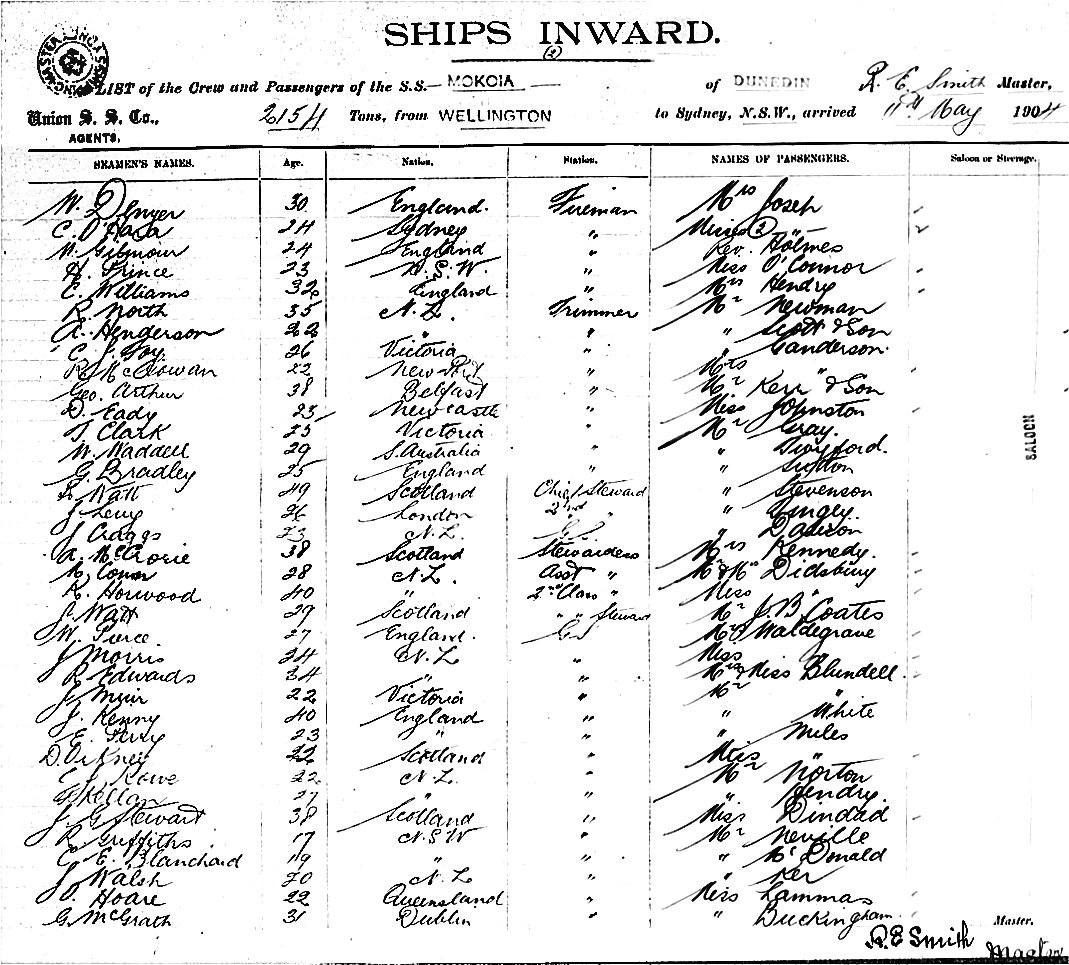 SHIPS INWARD.
(2)
LIST of the Crew and Passengers of the S.S. MOKOIA of DUNEDIN R. E. Smith Master,
Union S. S. Co., AGENTS. 2154 Tons, from WELLINGTON to Sydney, N.S.W., arrived 11th May 1904
SEAMEN'S NAMES. Age. Nation. Station. NAMES OF PASSENGERS. Saloon or Steerage.
W. Denyer 30 England. Fireman Mrs Joseph
C. O'Hara 24 Sydney " Misses (2) " 2
W. Gilmour 24 England " Rev. Holmes
H. Prince 23 N.S.W. " Miss O'Connor
E. Williams 32 England " Mrs Hendry
R. North 35 N.Z. Trimmer Mr Newman
A. Henderson 22 " " " Scott & Son
C. J. Foy. 26 Victoria " " Sanderson.
R. McGowan 22 New " Mrs "
Geo. Arthur 38 Belfast " Mr Kerr & Son
D. Eady 23 Newcastle " Miss Johnston
T. Clark 25 Victoria " Mr Gray.
W. Waddell 29 S. Australia " " Twyford.
G. Bradley 25 England " " Sutton
Watt 49 Scotland Chief Steward " Stevenson
J. Levy 26 London 2nd " "
J. Craggs 23 N.Z. " Davison
A. McCrorie 38 Scotland Stewardess Mrs Kennedy.
28 N.Z. Asst " Mr & Mrs Didsbury
K. Horwood 40 " 2nd Class " Miss "
J. Watt 29 Scotland " " Steward Mr J. B. Coates
W. Pierce 27 England. Waldegrave
J. Morris 24 N.Z. " Miss "
R. Edwards 34 " " Mrs & Miss Blundell
J. Muir 22 Victoria " Mr "
J. Kenny 40 England " " White
E. Perry 23 " " " Miles
D. 22 Scotland " Miss "
Rowe 22 N.Z. " Mr Norton
27 " " " Hendry
J. G. Stewart 38 Scotland " Miss Dindad
R. Griffiths 17 N.S.W " Mr Neville
C. E. Blanchard 19 " " " McDonald
J. Walsh 20 N.Z. " " Ker
Hoare 22 Queensland " Miss Lammas
G. McGrath 31 Dublin " " Buckingham.
SALOON
Master.
R. E Smith
Master